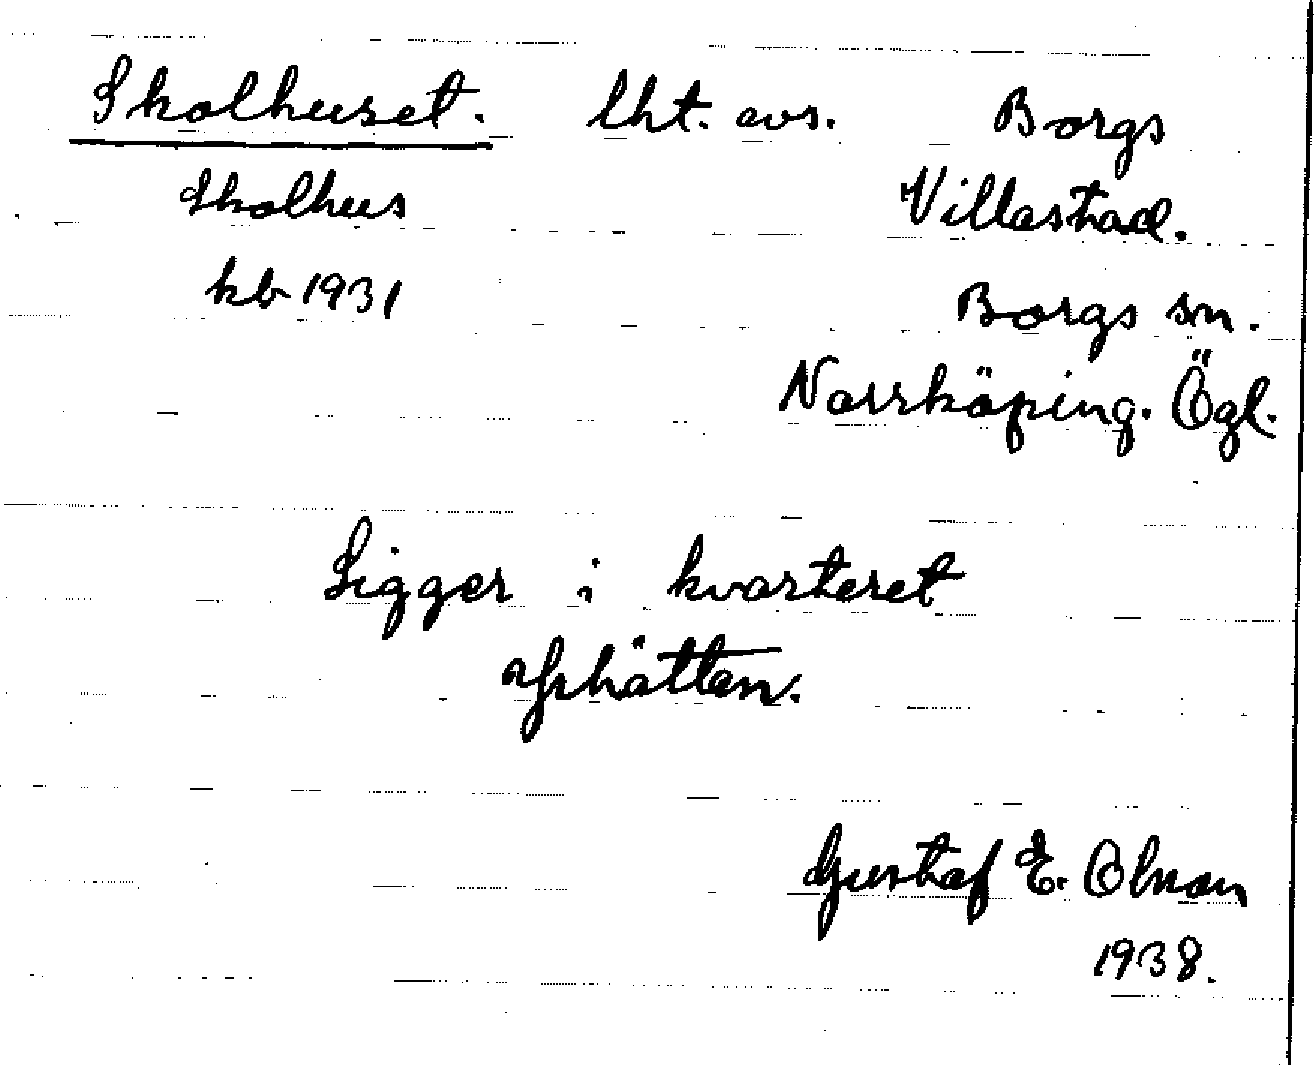 Skolhuset. lht. avs. Borgs
Skolhus Villastad.
kb 1931 Borgs sn.
Norrköping. Ögl.
Ligger i kvarteret
Gustaf E. Olson
1938.